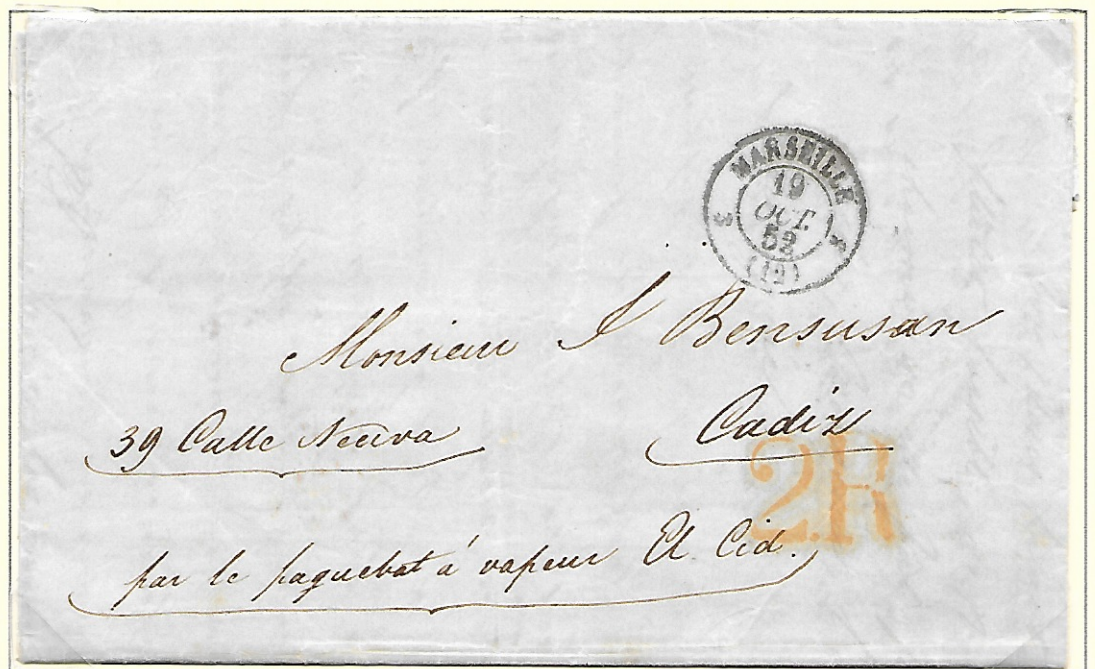 MARSEILLE
19
OCT.
52
(12)
Monsieur J Bensusan
39 Calle Neuva
Cadiz
2R
par le paquebot à vapeur El Cid.